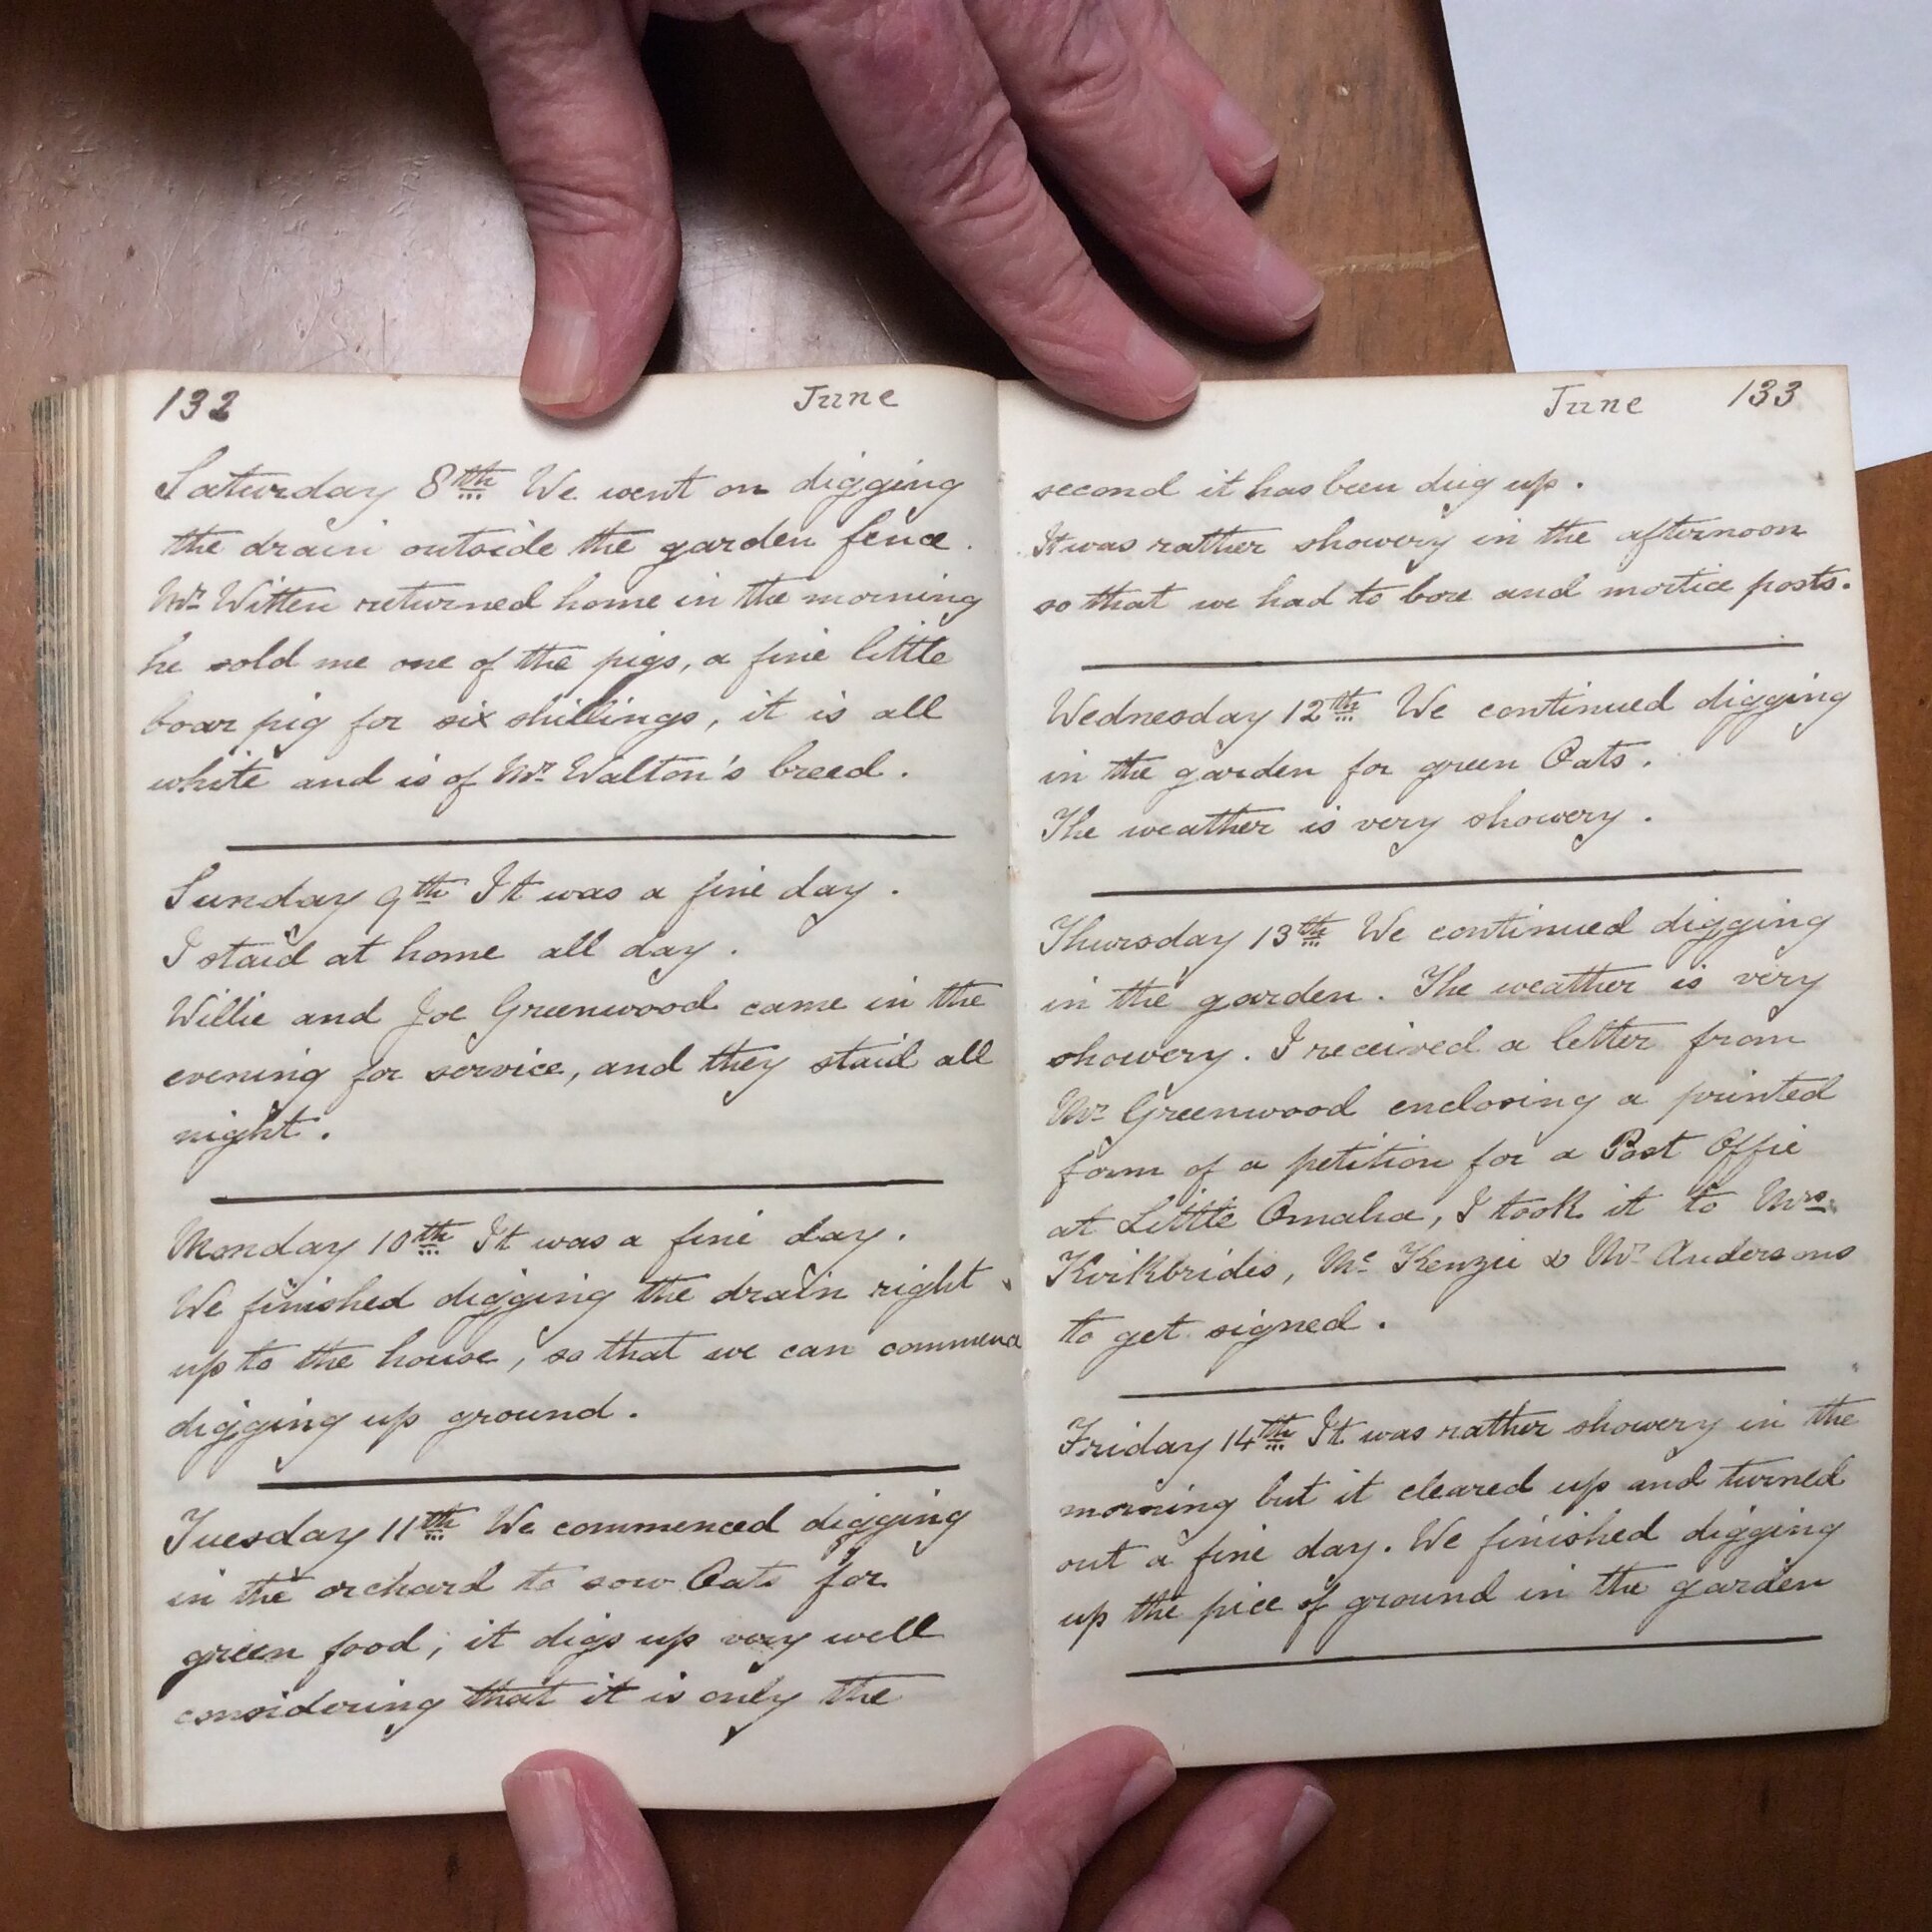 132 June
Saturday 8th We went on digging
the drain outside the garden fence.
Mr. Witten returned home in the morning
he sold me one of the pigs, a fine little
boar pig for six shillings, it is all
white and is of Mr. Walton's breed.
Sunday 9th It was a fine day.
I staid at home all day.
Willie and Joe Greenwood came in the
evening for service, and they staid all
night.
Monday 10th It was a fine day.
We finished digging the drain right
up to the house, so that we can commence
digging up ground.
Tuesday 11th We commenced digging
in the orchard to sow Oats for
green food; it digs up very well
considering that it is only the
June 133
second it has been dug up.
It was rather showery in the afternoon
so that we had to bore and mortice posts.
Wednesday 12th We continued digging
in the garden for green Oats.
The weather is very showery.
Thursday 13th We continued digging
in the garden. The weather is very
showery. I received a letter from
Mr. Greenwood enclosing a printed
form of a petition for a Post Offie
at Little Omaha, I took it to Mrs.
Kirkbrides, Mc Kenzie & Mr. Andersons
to get signed.
Friday 14th It was rather showery in the
morning but it cleared up and turned
out a fine day. We finished digging
up the pice of ground in the garden